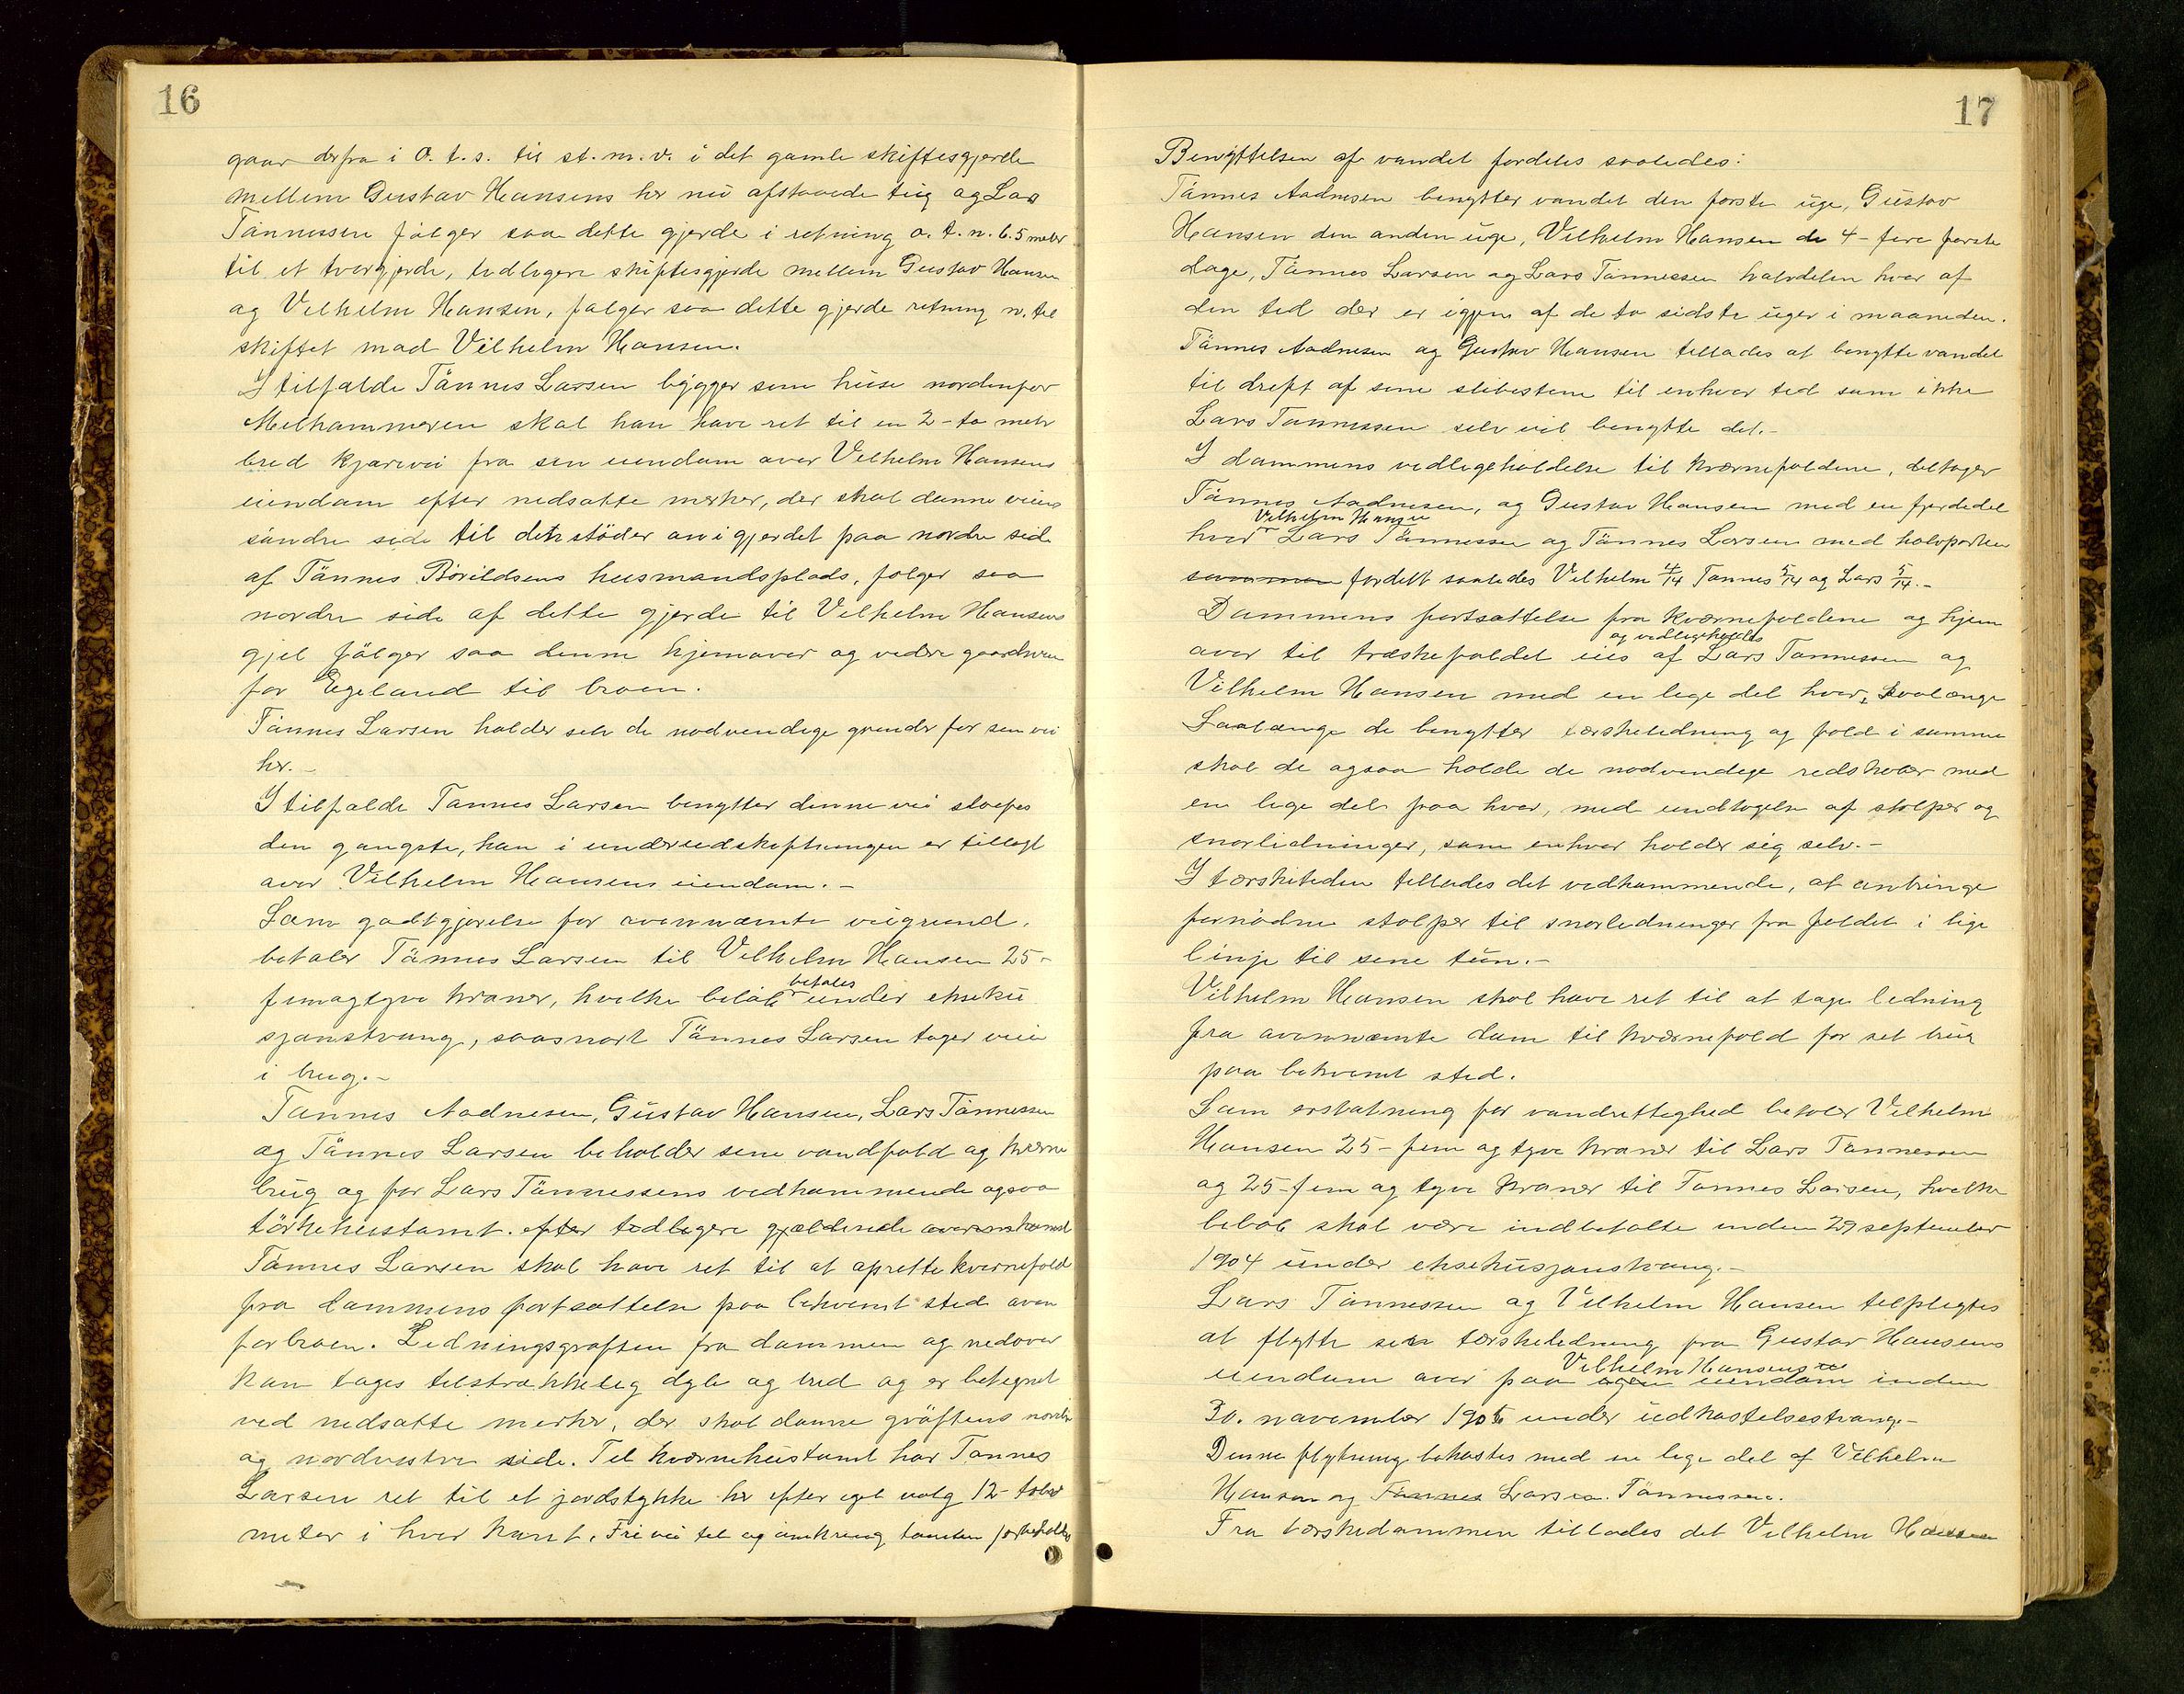 16
gaar derfra i o. t. s. til st. m. v. i det gamle skiftesgjerde
mellem Gustav Hansens her nu afstaaede teig og Lars
Tønnessen følger saa dette gjerde i retning o. t. n. 6.5 meter
til et tvergjerde, tidligere skiftesgjerde mellem Gustav Hansen
og Vilhelm Hansen, følger saa dette gjerde retning n. til
skiftet mod Vilhelm Hansen.
I tilfælde Tønnes Larsen bygger sine huse nordenfor
Melhammeren skal han have ret til en 2-to meter
bred kjørevei fra sin eiendom over Vilhelm Hansens
eiendom efter nedsatte merker, der skal danne veiens
søndre side til den støder an i gjerdet paa nordre side
af Tønnes Børildsens husmandsplads, følger saa
nordre side af dette gjerde til Vilhelm Hansens
gjel følger saa denne hjemover og videre gaardsveien
for Egeland til broen.
Tønnes Larsen holder selv de nødvendige grinder for sin vei
her.-
I tilfælde Tønnes Larsen benytter denne vei sløifes
den gangsti, han i underudskiftningen er tillagt
over Vilhelm Hansens eiendom.-
Som godtgjørelse for ovennæmte veigrund,
betaler Tønnes Larsen til Vilhelm Hansen 25-
betales
femogtyve kroner, hvilke beløb under ekseku
sjonstvang, saasnart Tønnes Larsen tager veien
i brug.-
Tønnes Aadnesen, Gustav Hansen, Lars Tønnessen
og Tønnes Larsen beholder sine vandfold og kværne
brug og for Lars Tønnessens vedkommende ogsaa
tørkehustomt. efter tidligere gjældende overenskomst
Tønnes Larsen skal have ret til at oprette kvernefold
fra dammens fortsættelse paa bekvemt sted oven
for broen. Ledningsgrøften fra dammen og nedover
kan tages tilstrækkelig dyb og bred og er betegnet
ved nedsatte merker, der skal danne grøftens nordre
og nordvestre side. Til kværnehustomt har Tønnes
Larsen ret til et jordstykke her efter eget valg 12-tolv
meter i hver kant. Fri vei til og omkring tomten forbeholdes
17
Benyttelsen af vandet fordeles saaledes:
Tønnes Aadnesen benytter vandet den første uge, Gustav
Hansen den anden uge, Vilhelm Hansen de 4-fire første
dage, Tønnes Larsen og Lars Tønnessen halvdelen hver af
den tid der er igjen af de to sidste uger i maaneden.
Tønnes Aadnesen og Gustav Hansen tillades at benytte vandet
til drift af sine slibestene til enhver tid som ikke
Lars Tønnessen selv vil benytte det.-
I dammens vedligeholdelse til kværnefoldene, deltager
Tønnes Aadnesen, og Gustav Hansen med en fjerdedel
Vilhelm Hansen
hver Lars Tønnessen og Tønnes Larsen med halvparten
sammen fordelt saaledes Vilhelm 4/14 Tønnes 5/14 og Lars 5/14.-
Dammens fortsættelse fra kværnefoldene og hjem
og vedligeholdes
over til træskefoldet eies af Lars Tønnessen og
Vilhelm Hansen med en lige del hver, saalænge
Saalænge de benytter tærskeledning og fold i samme
skal de ogsaa holde de nødvendige redskaber med
en lige del paa hver, med undtagelse af stolper og
snorledninger, som enhver holder sig selv.-
I tærsketiden tillades det vedkommende, at anbringe
fornødne stolper til snorledninger fra foldet i lige
linje til sine tun.-
Vilhelm Hansen skal have ret til at tage ledning
fra ovennæmte dam til kværnefold for sit brug
paa bekvemt sted.
Som erstatning for vandrettighed betaler Vilhelm
Hansen 25- fem og tyve kroner til Lars Tønnessen
og 25-fem og tyve kroner til Tønnes Larsen, hvilke
beløb skal være indbetalte inden 29 september
1904 under eksekusjonstvang.-
Lars Tønnessen og Vilhelm Hansen tilpligtes
at flytte sin tærskeledning fra Gustav Hansens
Vilhelm Hansens
eiendom over paa egen eiendom inden
30. november 1905 under udkastelsestvang.-
Denne flytning bekostes med en lige del af Vilhelm
Hansen og Tønnes Lars Tønnessen.
Fra tærskedammen tillades det Vilhelm Hansen